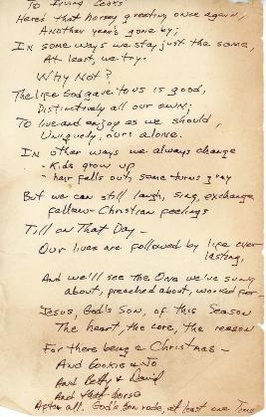 To Irving Cooks
Here's that horsey greeting once again,
Another year's gone by;
In some ways we stay just the same,
At least, we try.
Why Not?
The life God gave to us is good,
Distinctively all our own;
To live and enjoy as we should,
Uniquely, ours alone.
In other ways we always change
- Kids grow up
- hair falls out, some turns gray
But we can still laugh, sing, exchange
fellow-Christian feelings
Till on That Day -
Our lives are followed by life ever-
lasting,
And we'll see the One we've sung
about, preached about, worked for -
Jesus, God's Son, of this Season
The heart, the core, the reason
For there being a Christmas -
And Cookie & Jo
And Betty & David
And that horse
After all, God's Son rode, at least one Time